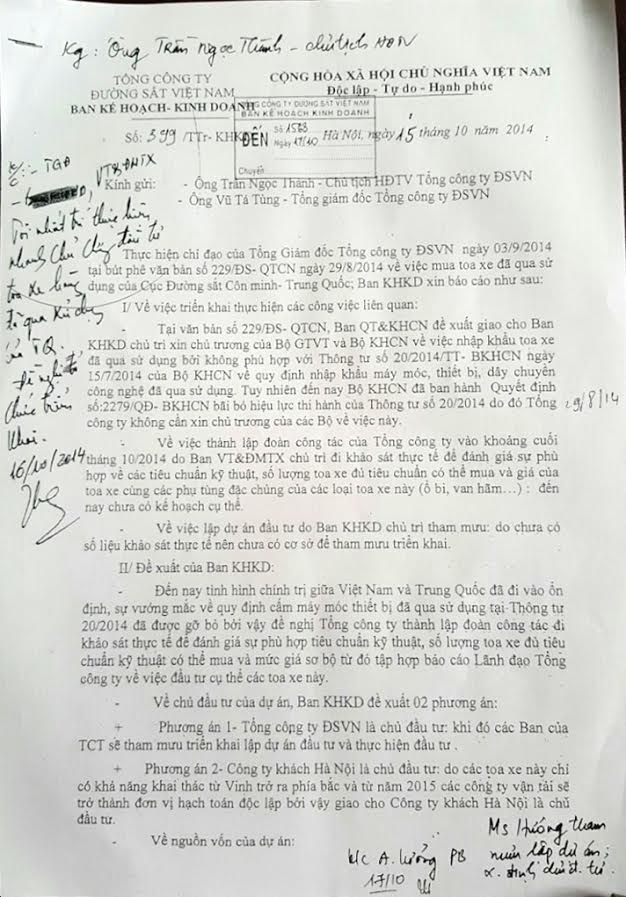 Kg: Ông Trần Ngọc Thành - chủ tịch HĐTV
TỔNG CÔNG TY
ĐƯỜNG SẮT VIỆT NAM
BAN KẾ HOẠCH- KINH DOANH
CỘNG HÒA XÃ HỘI CHỦ NGHĨA VIỆT NAM
Độc lập - Tự do - Hạnh phúc
TỔNG CÔNG TY ĐƯỜNG SẮT VIỆT NAM
BAN KẾ HOẠCH KINH DOANH
ĐẾN
Số: 1583
Ngày 17/10
Chuyển
Số: 399 /TTr- KHKD
Hà Nội, ngày 15 tháng 10 năm 2014
K/c: - TGĐ
VTB,ĐMTX
Tôi nhất trí thực hiện
nhanh chủ đầu tư
toa xe hàng
đã qua sử dụng
của TQ.
Đề nghị tổ
chức triển
khai.
16/10/2014
Kính gửi:
- Ông Trần Ngọc Thành - Chủ tịch HĐTV Tổng công ty ĐSVN
- Ông Vũ Tá Tùng - Tổng giám đốc Tổng công ty ĐSVN
Thực hiện chỉ đạo của Tổng Giám đốc Tổng công ty ĐSVN ngày 03/9/2014
tại bút phê văn bản số 229/ĐS- QTCN ngày 29/8/2014 về việc mua toa xe đã qua sử
dụng của Cục Đường sắt Côn minh- Trung Quốc; Ban KHKD xin báo cáo như sau:
I/ Về việc triển khai thực hiện các công việc liên quan:
- Tại văn bản số 229/ĐS- QTCN, Ban QT&KHCN đề xuất giao cho Ban
KHKD chủ trì xin chủ trương của Bộ GTVT và Bộ KHCN về việc nhập khẩu toa xe
đã qua sử dụng bởi không phù hợp với Thông tư số 20/2014/TT- BKHCN ngày
15/7/2014 của Bộ KHCN về quy định nhập khẩu máy móc, thiết bị, dây chuyền
công nghệ đã qua sử dụng. Tuy nhiên đến nay Bộ KHCN đã ban hành Quyết định
số:2279/QĐ- BKHCN bãi bỏ hiệu lực thi hành của Thông tư số 20/2014 do đó Tổng 29/8/14
công ty không cần xin chủ trương của các Bộ về việc này.
- Về việc thành lập đoàn công tác của Tổng công ty vào khoảng cuối
tháng 10/2014 do Ban VT&ĐMTX chủ trì đi khảo sát thực tế để đánh giá sự phù
hợp về các tiêu chuẩn kỹ thuật, số lượng toa xe đủ tiêu chuẩn có thể mua và giá của
toa xe cùng các phụ tùng đặc chủng của các loại toa xe này (ổ bi, van hãm…) : đến
nay chưa có kế hoạch cụ thể.
- Về việc lập dự án đầu tư do Ban KHKD chủ trì tham mưu: do chưa có
số liệu khảo sát thực tế nên chưa có cơ sở để tham mưu triển khai.
II/ Đề xuất của Ban KHKD:
- Đến nay tình hình chính trị giữa Việt Nam và Trung Quốc đã đi vào ổn
định, sự vướng mắc về quy định cấm máy móc thiết bị đã qua sử dụng tại Thông tư
20/2014 đã được gỡ bỏ bởi vậy đề nghị Tổng công ty thành lập đoàn công tác đi
khảo sát thực tế để đánh giá sự phù hợp tiêu chuẩn kỹ thuật, số lượng toa xe đủ tiêu
chuẩn kỹ thuật có thể mua và mức giá sơ bộ từ đó tập hợp báo cáo Lãnh đạo Tổng
công ty về việc đầu tư cụ thể các toa xe này.
- Về chủ đầu tư của dự án, Ban KHKD đề xuất 02 phương án:
+ Phương án 1- Tổng công ty ĐSVN là chủ đầu tư: khi đó các Ban của
TCT sẽ tham mưu triển khai lập dự án đầu tư và thực hiện đầu tư .
+ Phương án 2- Công ty khách Hà Nội là chủ đầu tư: do các toa xe này chỉ
có khả năng khai thác từ Vinh trở ra phía bắc và từ năm 2015 các công ty vận tải sẽ
trở thành đơn vị hạch toán độc lập bởi vậy giao cho Công ty khách Hà Nội là chủ
đầu tư.
- Về nguồn vốn của dự án:
K/c A. Lưỡng PB
17/10
Ms Hướng tham
mưu lập dự án;
x. định chủ đ. tư.